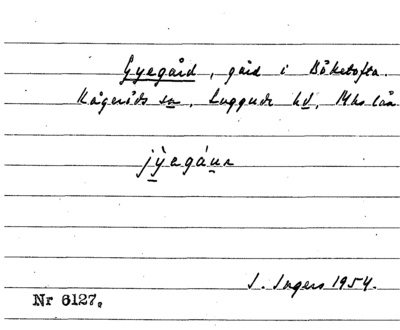 Gyegård, gård i Böketofta.
Kågeröds sn, Luggude hd, Mhs län
jỳegáun
I. Ingers 1954.
Nr 6127.